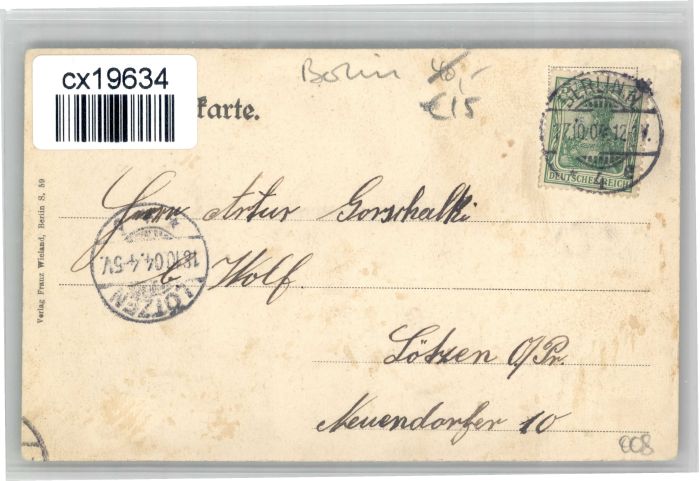 cx19634
Berlin 40,-
€15
karte.
BERLIN N
17.10.04. 12-1V.
4
DEUTSCHES REICH
Herrn Artur Gorschalki
b Wolf.
Lötzen O/Pr.
Neuendorfer 10
LÖTZEN
18.10.04. 4-5V.
Verlag Franz Wieland, Berlin S. 59